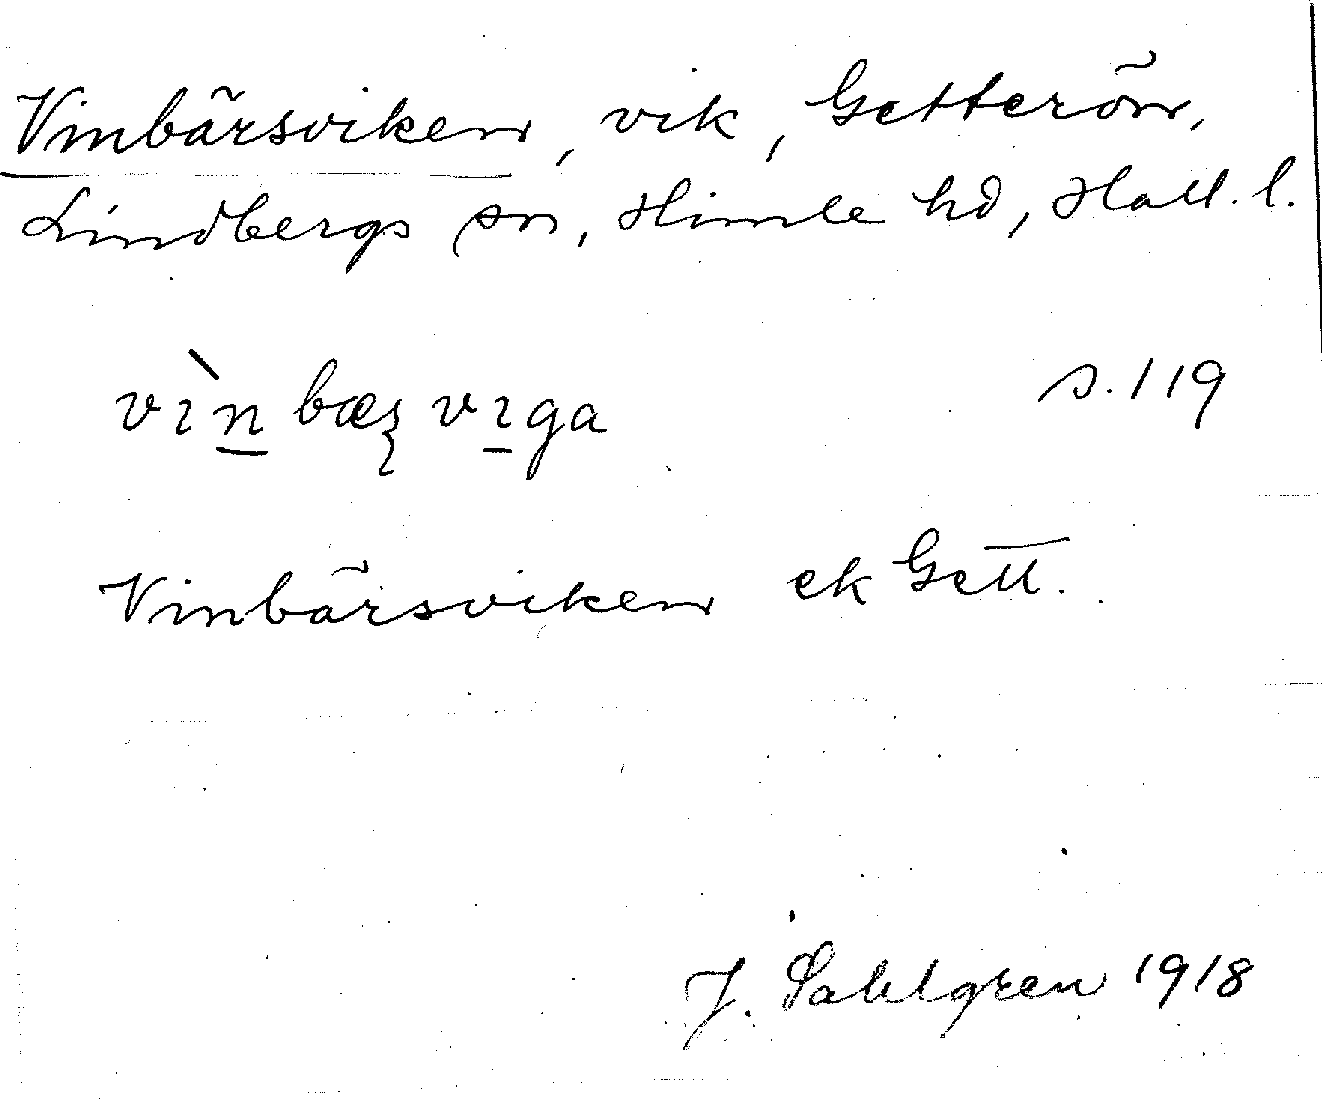 Vinbärsviken, vik, Getterön,
Lindbergs sn, Himle hd, Hall. l.
vìn bæʂ viga s. 119
Vinbärsviken ek Gett.
J. Sahlgren 1918